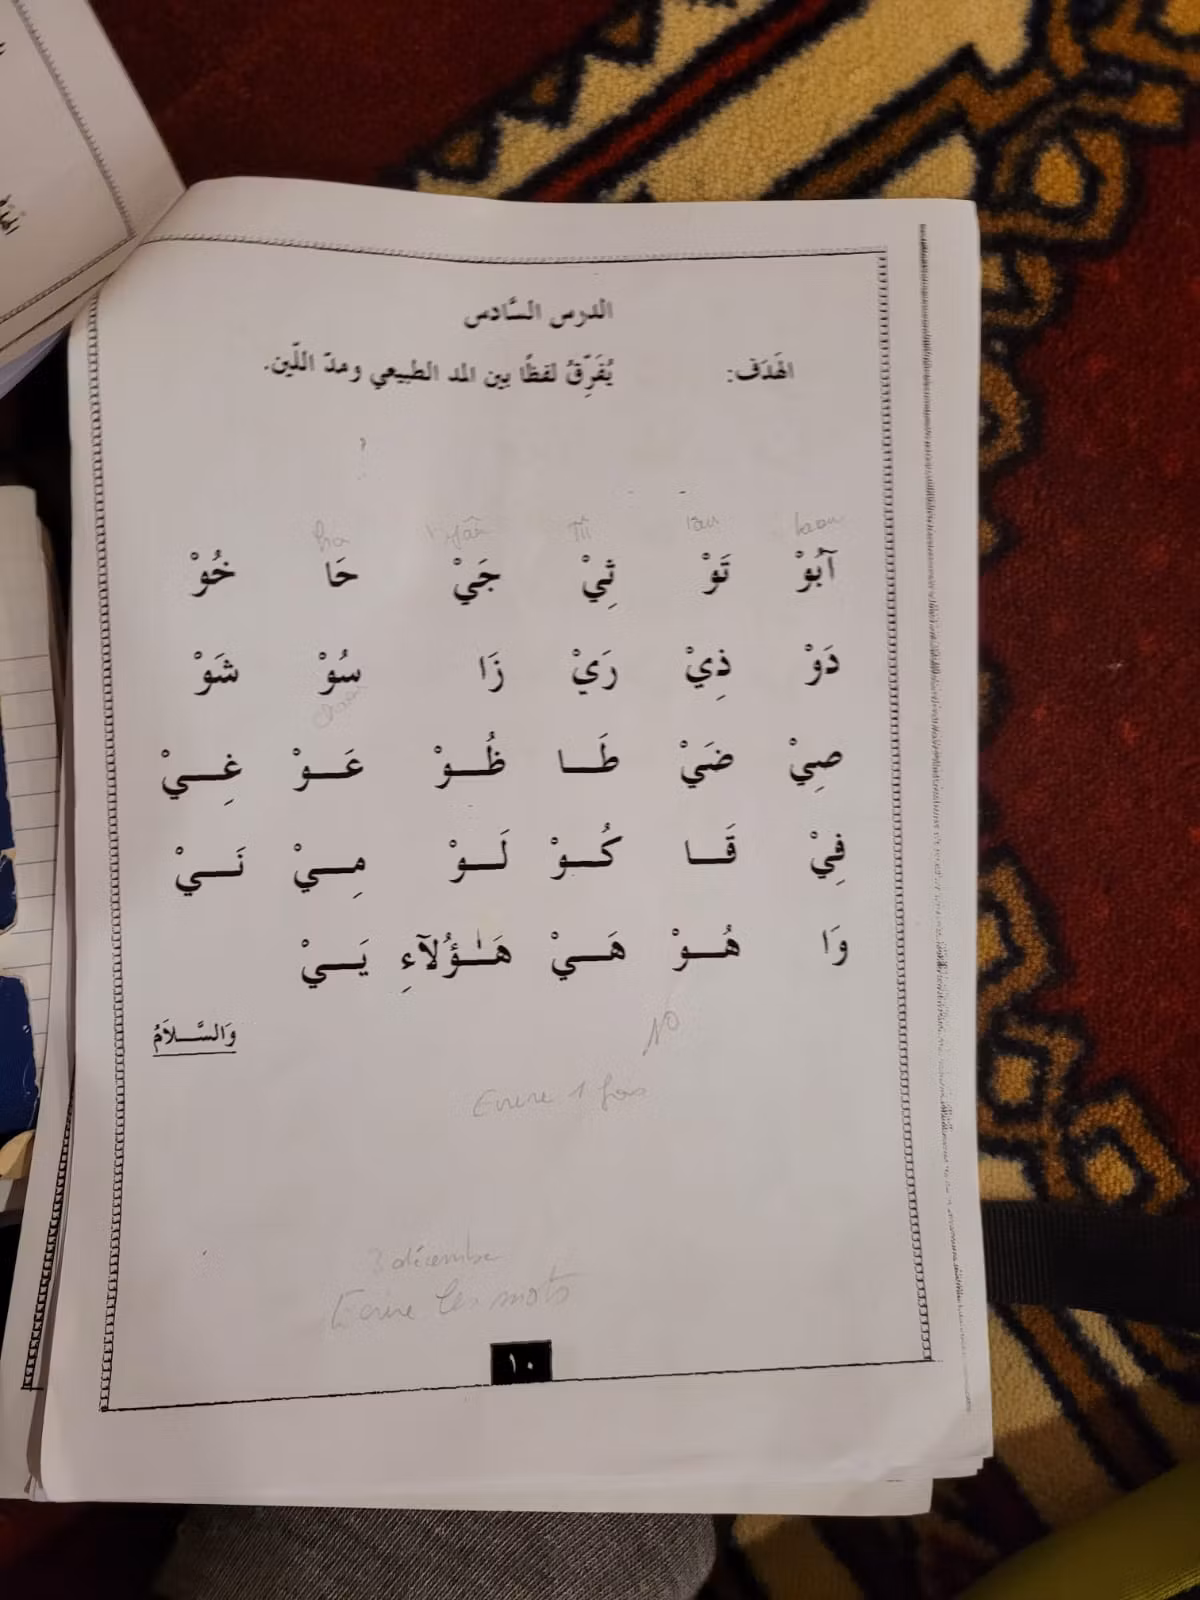 الدرس السَّادس
الهَدَف: يُفَرِّقُ لفظًا بين المد الطبيعي ومدّ اللّين.
baou tau Tii ha
آبُوْ تَوْ ثِيْ جَيْ حَا خُوْ
دَوْ ذِيْ رَيْ زَا سُوْ شَوْ
صِيْ ضَيْ طَـا ظُـوْ عَـوْ غِـيْ
فِيْ قَـا كُـوْ لَـوْ مِـيْ نَـيْ
وَا هُـوْ هَـيْ هَـٰـؤُلَآءِ يَـيْ
وَالسَّـلاَمُ
Ecrire 1 fois
3 décembre
Ecrire les mots
١٠